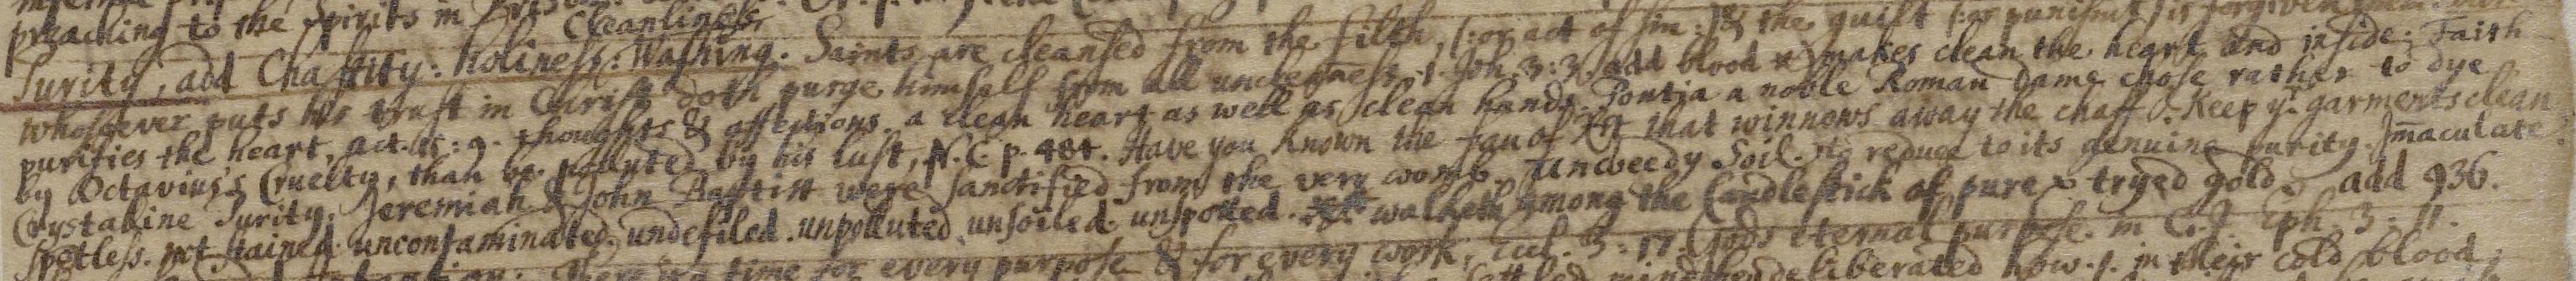 preaching to the Spirits in
Cleanliness
Purity, add Chastity: holiness: Washing. Saints are cleansed from the filth, (:or act of sin:) & the guilt (:or punishmt:) is forgiven
whosoever puts his trust in Christ doth purge himself from all uncleaness. 1. Joh. 3:3. add blood makes clean the heart and inside: Faith
purifies the heart, act. 15:9. thoughts & affections. a clean heart as well as clean hands. Pontia a noble Roman Dame chose rather to dye
by Octavius's Cruelty, than be polluted by his lust, N.C. p. 484. Have you known the fan of Xt that winnows away the chaff. Keep yr garments clean
Crystaline Purity. Jeremiah & John Baptist were sanctified from the very womb. Unweedy Soil. to reduce to its genuine purity. Im̄aculate
spotless. not stained. uncontaminated. undefiled. unpolluted. unsoiled. unspotted. walketh among the Candlestick of pure & tryed gold. add 936.
There is a time for every purpose & for every work, Eccl. 3:17. Gods eternal purpose in C.J. Eph. 3:11.
deliberated how. in their cold blood,